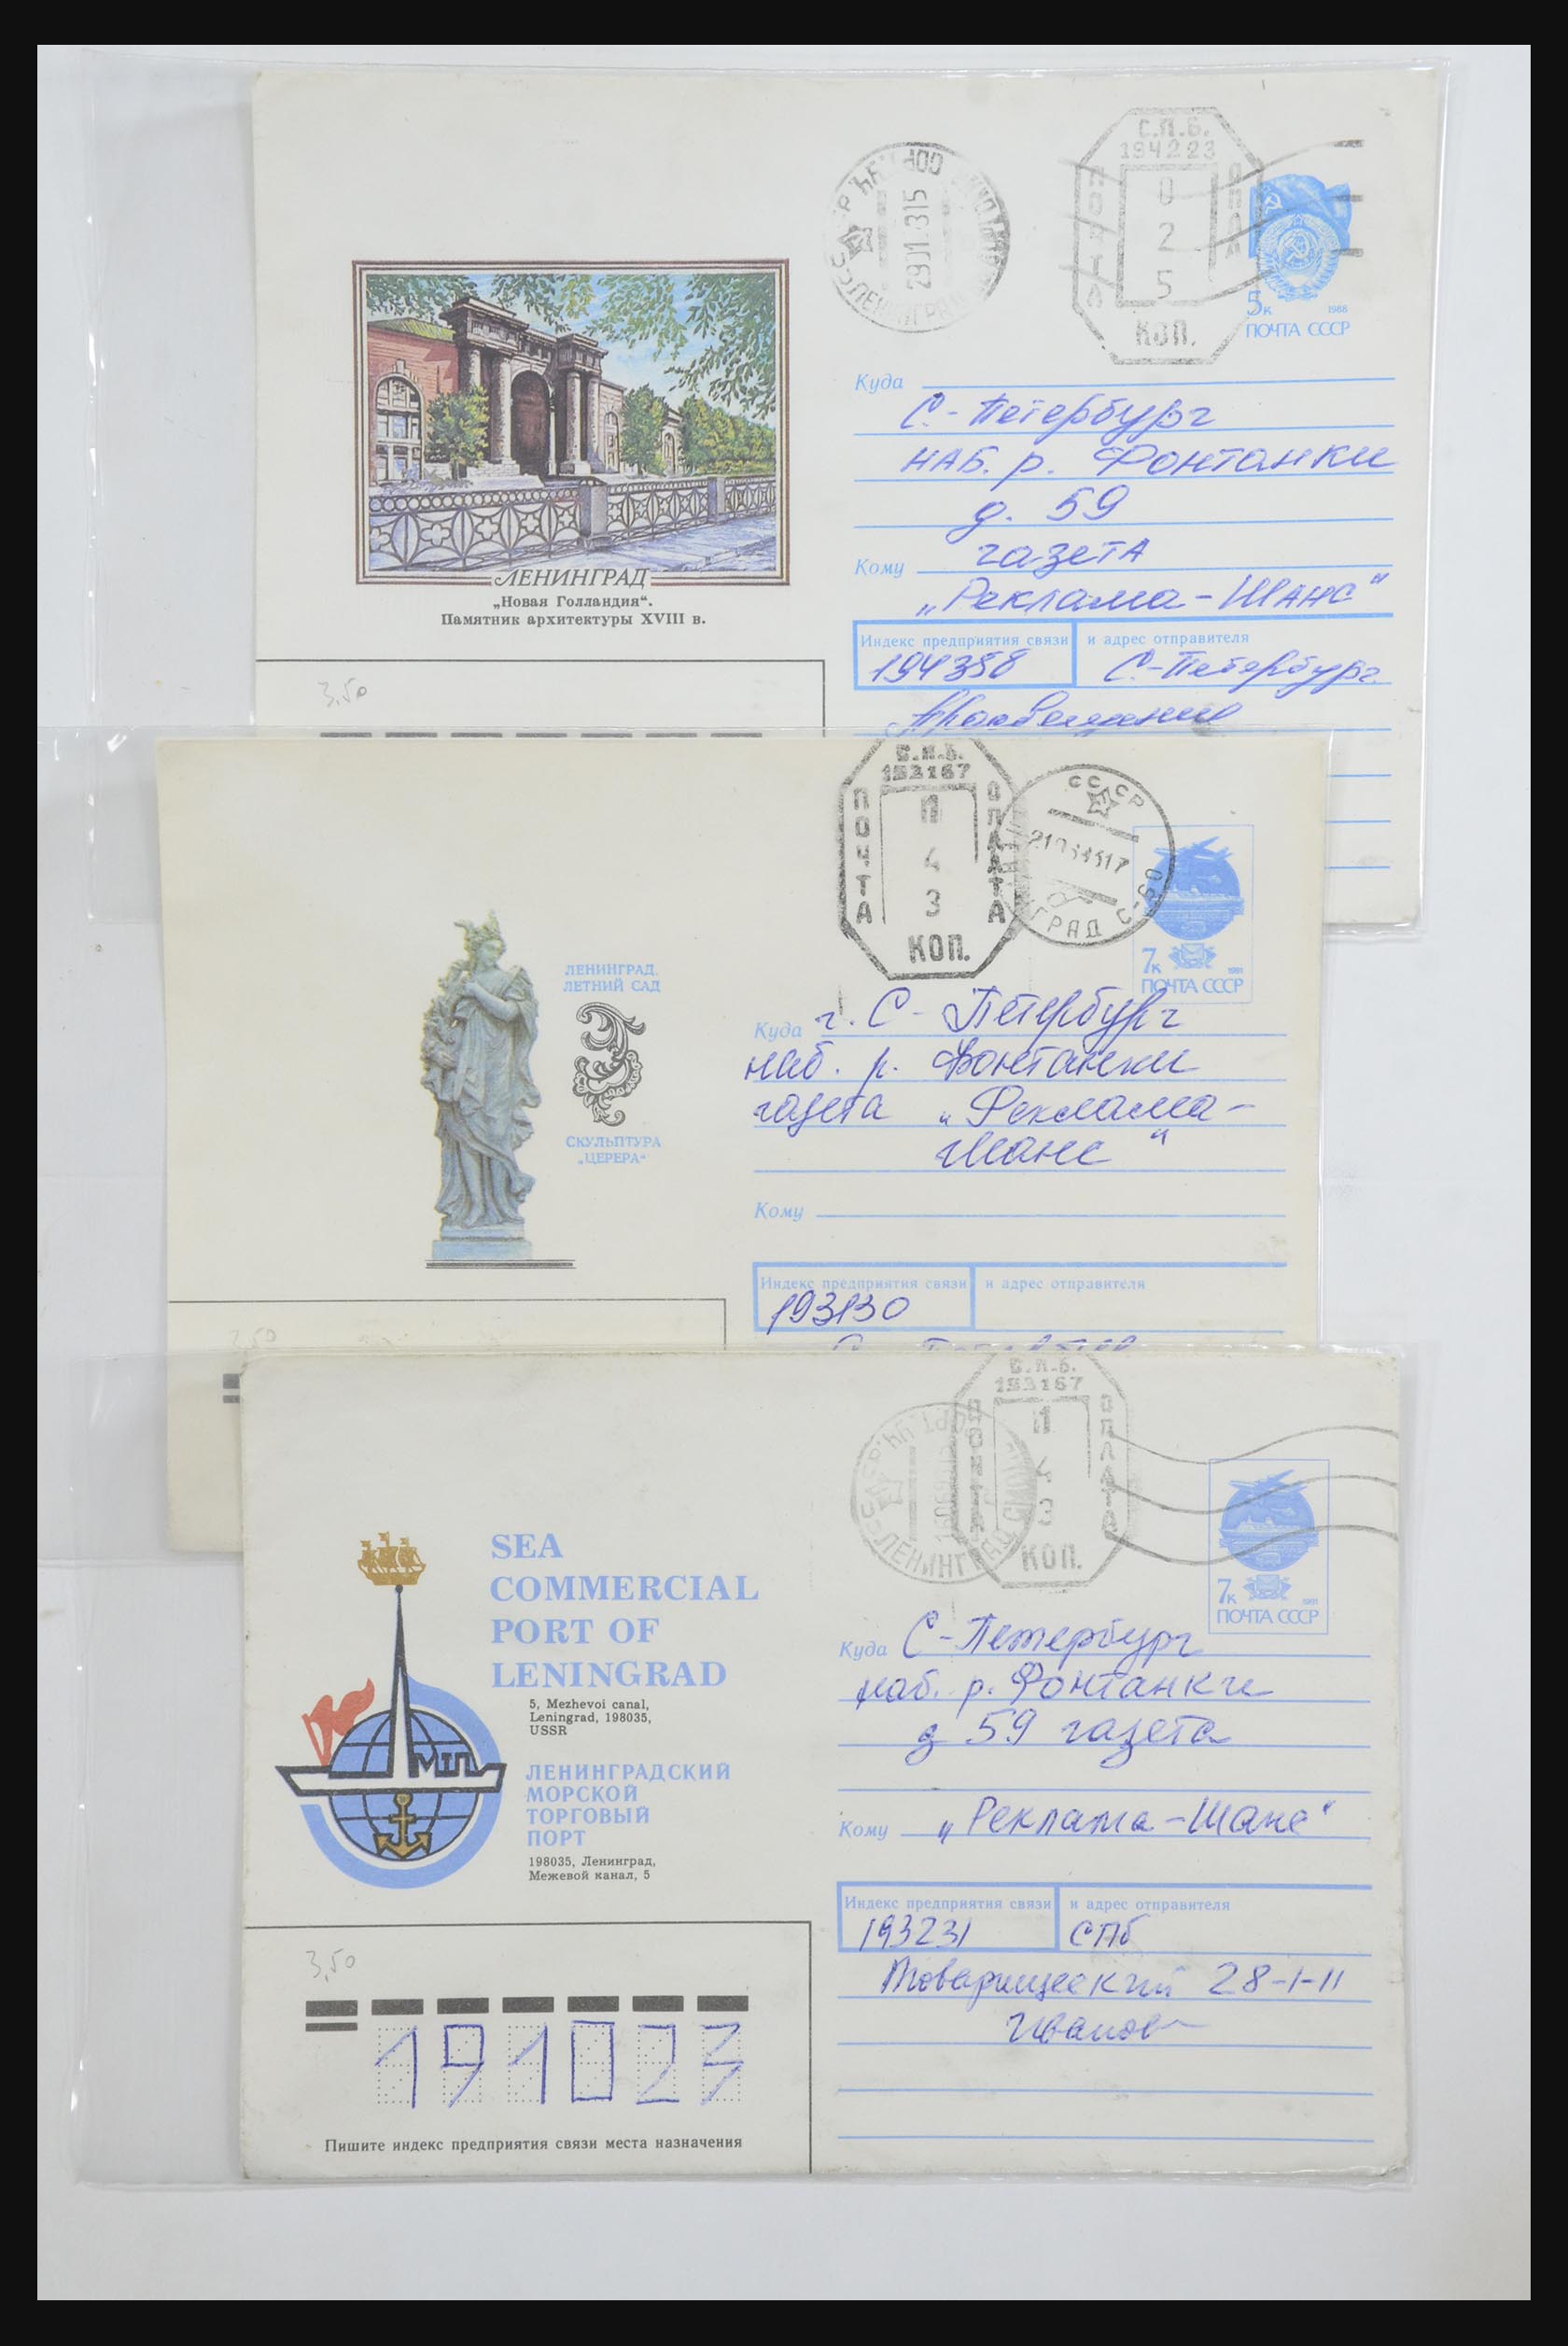 С.П.Б.
194223
ПОЧТА
ОПЛА
0
2
5
КОП.
ЛЕНИНГРАД
5к
1988
ПОЧТА СССР
ЛЕНИНГРАД
„Новая Голландия“.
Памятник архитектуры XVIII в.
3,50
Куда
С.-Петербург
НАБ. р. Фонтанки
д. 59
Кому газета
„Реклама-Шанс“
Индекс предприятия связи и адрес отправителя
194358 С-Петербург
Просвещения
С.П.Б.
193167
ПОЧТА
ОПЛАТА
4
3
КОП.
СССР
ГРАД С-60
7к
1991
ПОЧТА СССР
ЛЕНИНГРАД.
ЛЕТНИЙ САД
СКУЛЬПТУРА
„ЦЕРЕРА“
Куда г. С-Петербург
наб. р. Фонтанки
газета „Реклама-
Шанс“
Кому
Индекс предприятия связи и адрес отправителя
193130
3,50
С.П.Б.
193167
ОПЛАТА
3
КОП.
ЛЕНИНГРАД
7к
1991
ПОЧТА СССР
SEA
COMMERCIAL
PORT OF
LENINGRAD
5, Mezhevoi canal,
Leningrad, 198035,
USSR
МТП
ЛЕНИНГРАДСКИЙ
МОРСКОЙ
ТОРГОВЫЙ
ПОРТ
198035, Ленинград,
Межевой канал, 5
Куда С-Петербург
наб. р. Фонтанки
д 59 газета
Кому „Реклама-Шанс“
Индекс предприятия связи и адрес отправителя
193231 СПб
Товарищеский 28-1-11
Иванов
3,50
191023
Пишите индекс предприятия связи места назначения